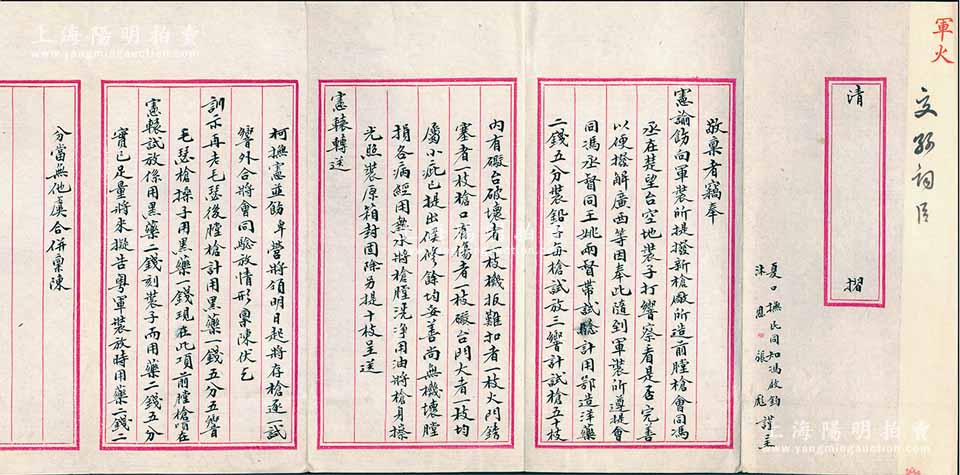 軍火
清摺
夏口撫民同知馮啟鈞
沐恩張彪 謹呈
敬稟者竊奉
憲諭飭向軍裝所提撥新槍廠所造前膛槍會同馮
丞在楚望台空地裝子打響察看是否完善
以便撥解廣西等因奉此隨到軍裝所遵提會
同馮丞督同王姚兩督帶試驗計用鄂造洋藥
二錢五分裝鉛子每槍試放三響計試槍五十枝
內有礮台破壞者一枝機扳難扣者一枝火門銹
塞者一枝槍口有傷者一枝礮台門大者一枝均
屬小疵已提出候修餘均妥善尚無機壞膛
損各病經用熱水將槍膛洗淨用油將槍身擦
光照裝原箱封固除另提十枝呈送
憲轅轉送
柯撫憲並飭卑營將領明日起將存槍逐一試
響外合將會同驗放情形稟陳伏乞
訓示再老毛瑟後膛槍計用黑藥一錢五分五響
毛瑟槍操子用黑藥一錢現在此項前膛槍嘴在
憲轅試放係用黑藥二錢刻裝子而用藥二錢五分
實已足量將來擬告粵軍裝放時用藥二錢二
分當無他虞合併稟陳
上海陽明拍賣
www.yangmingauction.com
上海陽明拍賣
www.yangmingauction.com